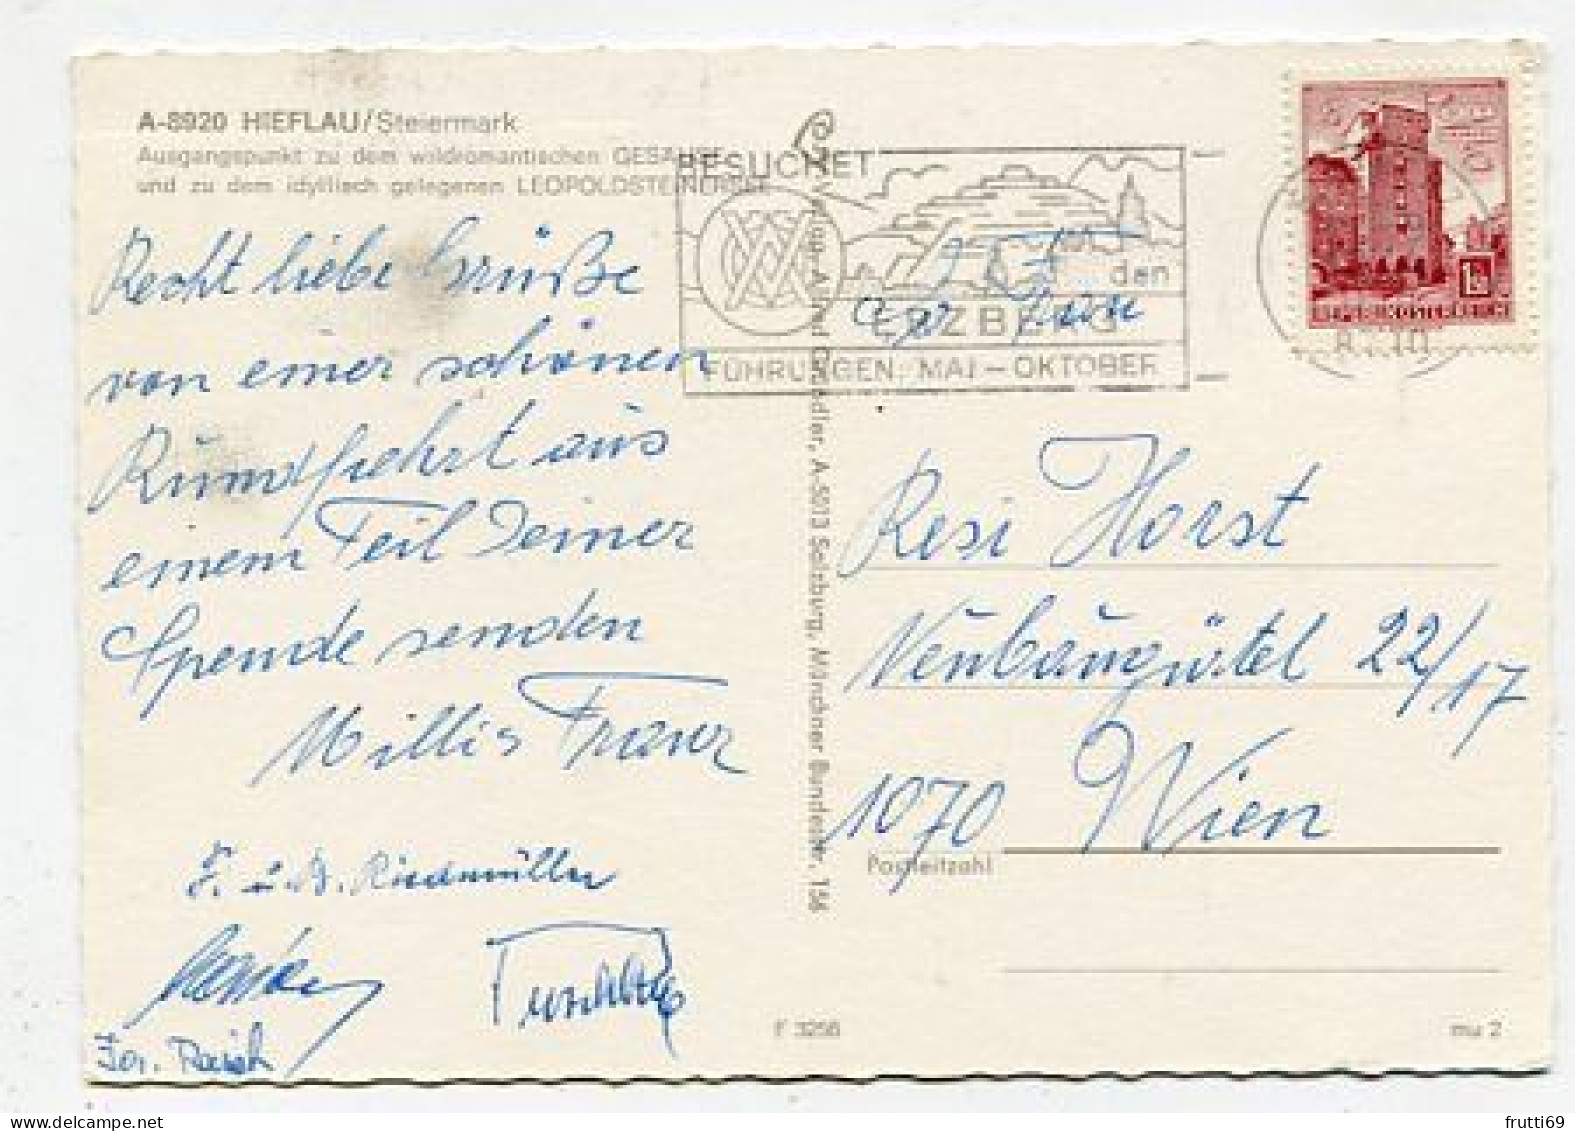 A-8920 HIEFLAU/Steiermark
Ausgangspunkt zu dem wildromantischen GESÄUSE
und zu dem idyllisch gelegenen LEOPOLDSTEINERSEE
Recht liebe Grüße
von einer schönen
Rundfahrt aus
einem Teil Deiner
Spende senden
Millis Franz
F. u. B. Riedmüller
BESUCHET
den
ERZBERG
FÜHRUNGEN: MAI – OKTOBER
REPUBLIK ÖSTERREICH
Resi Horst
Neubaugürtel 22/17
1070 Wien
Postleitzahl
A-5013 Salzburg, Münchner Bundesstr. 156
F 3256
mu 2
frutti69